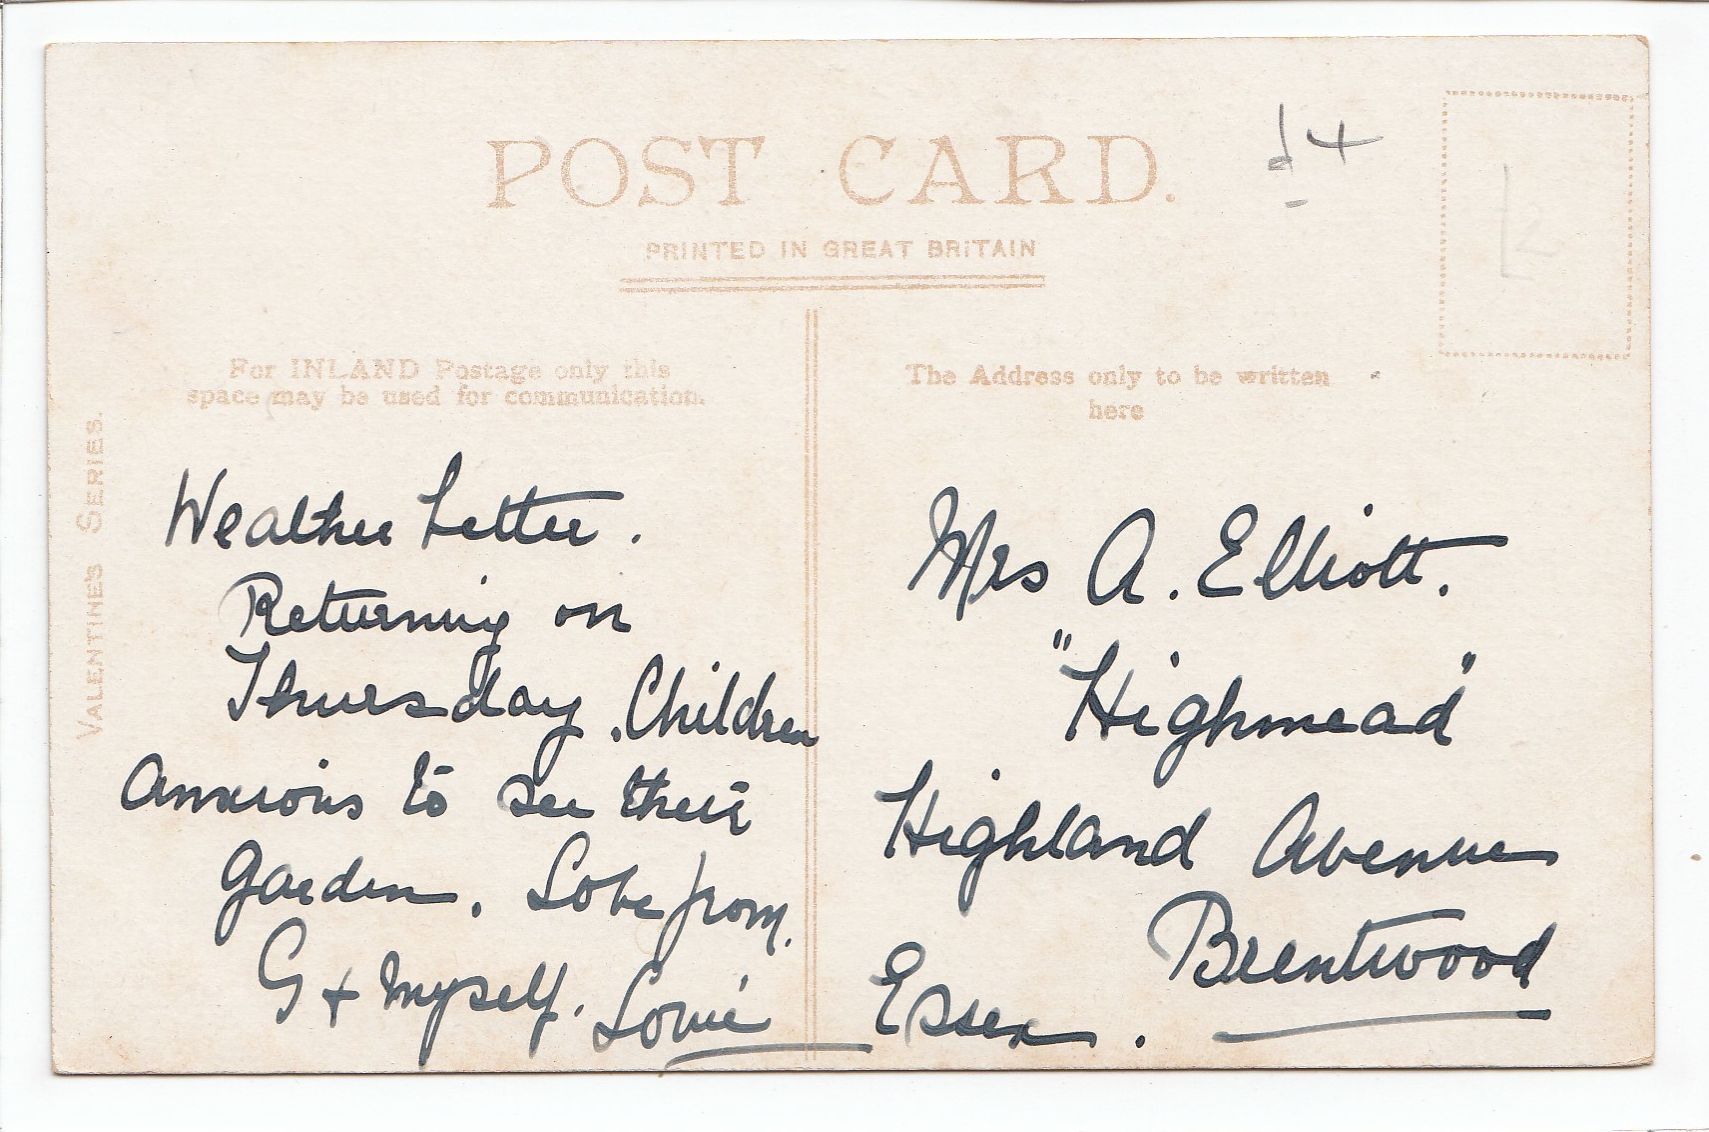 POST CARD.
PRINTED IN GREAT BRITAIN
For INLAND Postage only this
space may be used for communication.
The Address only to be written
here
VALENTINE'S SERIES.
Weather Better.
Returning on
Thursday. Children
anxious to see their
garden. Love from
G + myself. Louie
Mrs A. Elliott.
"Highmead"
Highland Avenue
Brentwood
Essex.